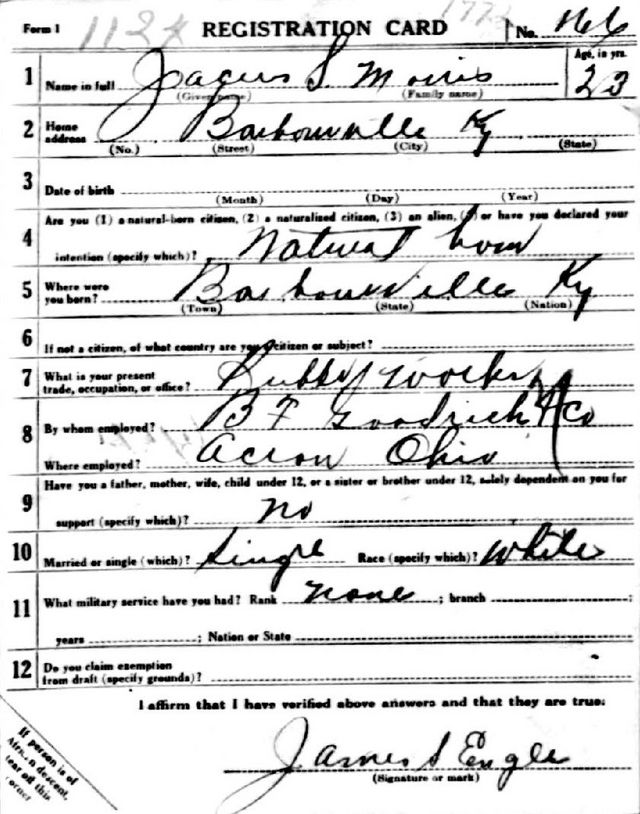 Form 1 1124 REGISTRATION CARD No. 166
1 Name in full Jagers S. Morris Age, in yrs. 23
(Given name) (Family name)
2 Home address Barbourville Ky
(No.) (Street) (City) (State)
3 Date of birth
(Month) (Day) (Year)
4 Are you (1) a natural-born citizen, (2) a naturalized citizen, (3) an alien, (4) or have you declared your
intention (specify which)? Natural born
5 Where were you born? Barbourville Ky
(Town) (State) (Nation)
6 If not a citizen, of what country are you a citizen or subject?
7 What is your present trade, occupation, or office? Rubber Worker
8 By whom employed? B F Goodrich & Co
Where employed? Acron Ohio
9 Have you a father, mother, wife, child under 12, or a sister or brother under 12, solely dependent on you for
support (specify which)? no
10 Married or single (which)? Single Race (specify which)? White
11 What military service have you had? Rank none ; branch ;
years ; Nation or State
12 Do you claim exemption from draft (specify grounds)?
I affirm that I have verified above answers and that they are true.
James S Engle
(Signature or mark)
If person is of
African descent,
tear off this
corner